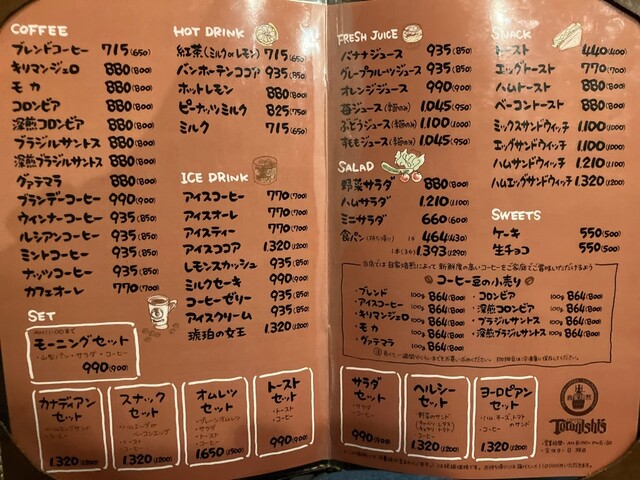 COFFEE
ブレンドコーヒー 715(650)
キリマンジェロ 880(800)
モカ 880(800)
コロンビア 880(800)
深煎コロンビア 880(800)
ブラジルサントス 880(800)
深煎ブラジルサントス 880(800)
グァテマラ 880(800)
ブランデーコーヒー 990(900)
ウィンナーコーヒー 935(850)
ルシアンコーヒー 935(850)
ミントコーヒー 935(850)
ナッツコーヒー 935(850)
カフェオーレ 770(700)
HOT DRINK
紅茶(ミルクorレモン) 715(650)
バンホーテンココア 935(850)
ホットレモン 880(800)
ピーナッツミルク 825(750)
ミルク 715(650)
ICE DRINK
アイスコーヒー 770(700)
アイスオーレ 770(700)
アイスティー 770(700)
アイスココア 1.320(1200)
レモンスカッシュ 935(850)
ミルクセーキ 990(900)
コーヒーゼリー 935(850)
アイスクリーム 935(850)
琥珀の女王 1.320(1200)
SET
モーニングセット
・山型パン・サラダ・コーヒー
990(900)
カナディアンセット
コーヒー
1.320(1200)
スナックセット
・トースト
コーヒー
1.320(1200)
オムレツセット
・プレーンオムレツ
・サラダ
・トースト
・コーヒー
1.650(1500)
トーストセット
・トースト
・コーヒー
990(900)
FRESH JUICE
バナナジュース 935(850)
グレープフルーツジュース 935(850)
オレンジジュース 990(900)
苺ジュース(期間のみ) 1.045(950)
ぶどうジュース(期間のみ) 1.100(1000)
すももジュース(期間のみ) 1.045(950)
SALAD
野菜サラダ 880(800)
ハムサラダ 1.210(1100)
ミニサラダ 660(600)
食パン(持ち帰り) 1斤 464(430)
1本(3斤) 1.393(1290)
SNACK
トースト 440(400)
エッグトースト 770(700)
ハムトースト 880(800)
ベーコントースト 880(800)
ミックスサンドウィッチ 1.100(1000)
エッグサンドウィッチ 1.100(1000)
ハムサンドウィッチ 1.210(1100)
ハムエッグサンドウィッチ 1.320(1200)
SWEETS
ケーキ 550(500)
生チョコ 550(500)
当店では自家焙煎によって新鮮度の高いコーヒーをご家庭でご賞味いただけるよう
コーヒー豆の小売り
・ブレンド 100g 864(800)
・アイスコーヒー 100g 864(800)
・キリマンジェロ 100g 864(800)
・モカ 100g 864(800)
・グァテマラ 100g 864(800)
・コロンビア 100g 864(800)
・深煎コロンビア 100g 864(800)
・ブラジルサントス 100g 864(800)
・深煎ブラジルサントス 100g 864(800)
サラダセット
サラダ
コーヒー
990(900)
ヘルシーセット
・野菜のサンド
コーヒー
1.320(1200)
ヨーロピアンセット
・ハム、チーズ、トマトのサンド
・コーヒー
1.320(1200)
Torunishi's